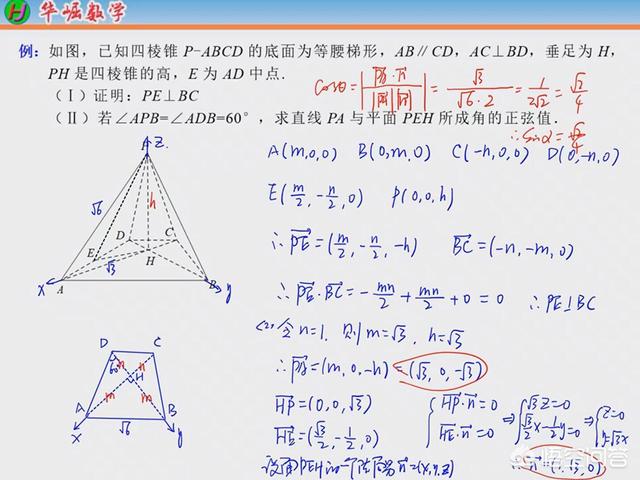 华崛数学
例：如图，已知四棱锥 P-ABCD 的底面为等腰梯形，AB∥CD，AC⊥BD，垂足为 H，
PH 是四棱锥的高，E 为 AD 中点.
（Ⅰ）证明：PE⊥BC
（Ⅱ）若∠APB=∠ADB=60°，求直线 PA 与平面 PEH 所成角的正弦值.
cosθ=|PA·n / |PA||n|| = √3/(√6·2) = 1/(2√2) = √2/4
∴ sinα = √2/4
A(m,0,0) B(0,m,0) C(-n,0,0) D(0,-n,0)
E(m/2,-n/2,0) P(0,0,h)
∴ PE=(m/2,-n/2,-h) BC=(-n,-m,0)
∴ PE·BC=-mn/2+mn/2+0=0 ∴ PE⊥BC
(2) 令n=1, 则m=√3, h=√3
∴ PA=(m,0,-h)=(√3,0,-√3)
HP=(0,0,√3)
HE=(√3/2,-1/2,0)
{HP·n=0
HE·n=0
⇒{√3z=0
√3/2x-1/2y=0
⇒{z=0
y=√3x
设面PEH的一个法向量为n=(x,y,z)
∴ n=(1,√3,0)
z
√6
h
D
C
E
√3
H
x
A
B
y
D
C
60°
n
n
H
m
m
A
B
x
√6
y
悟空问答